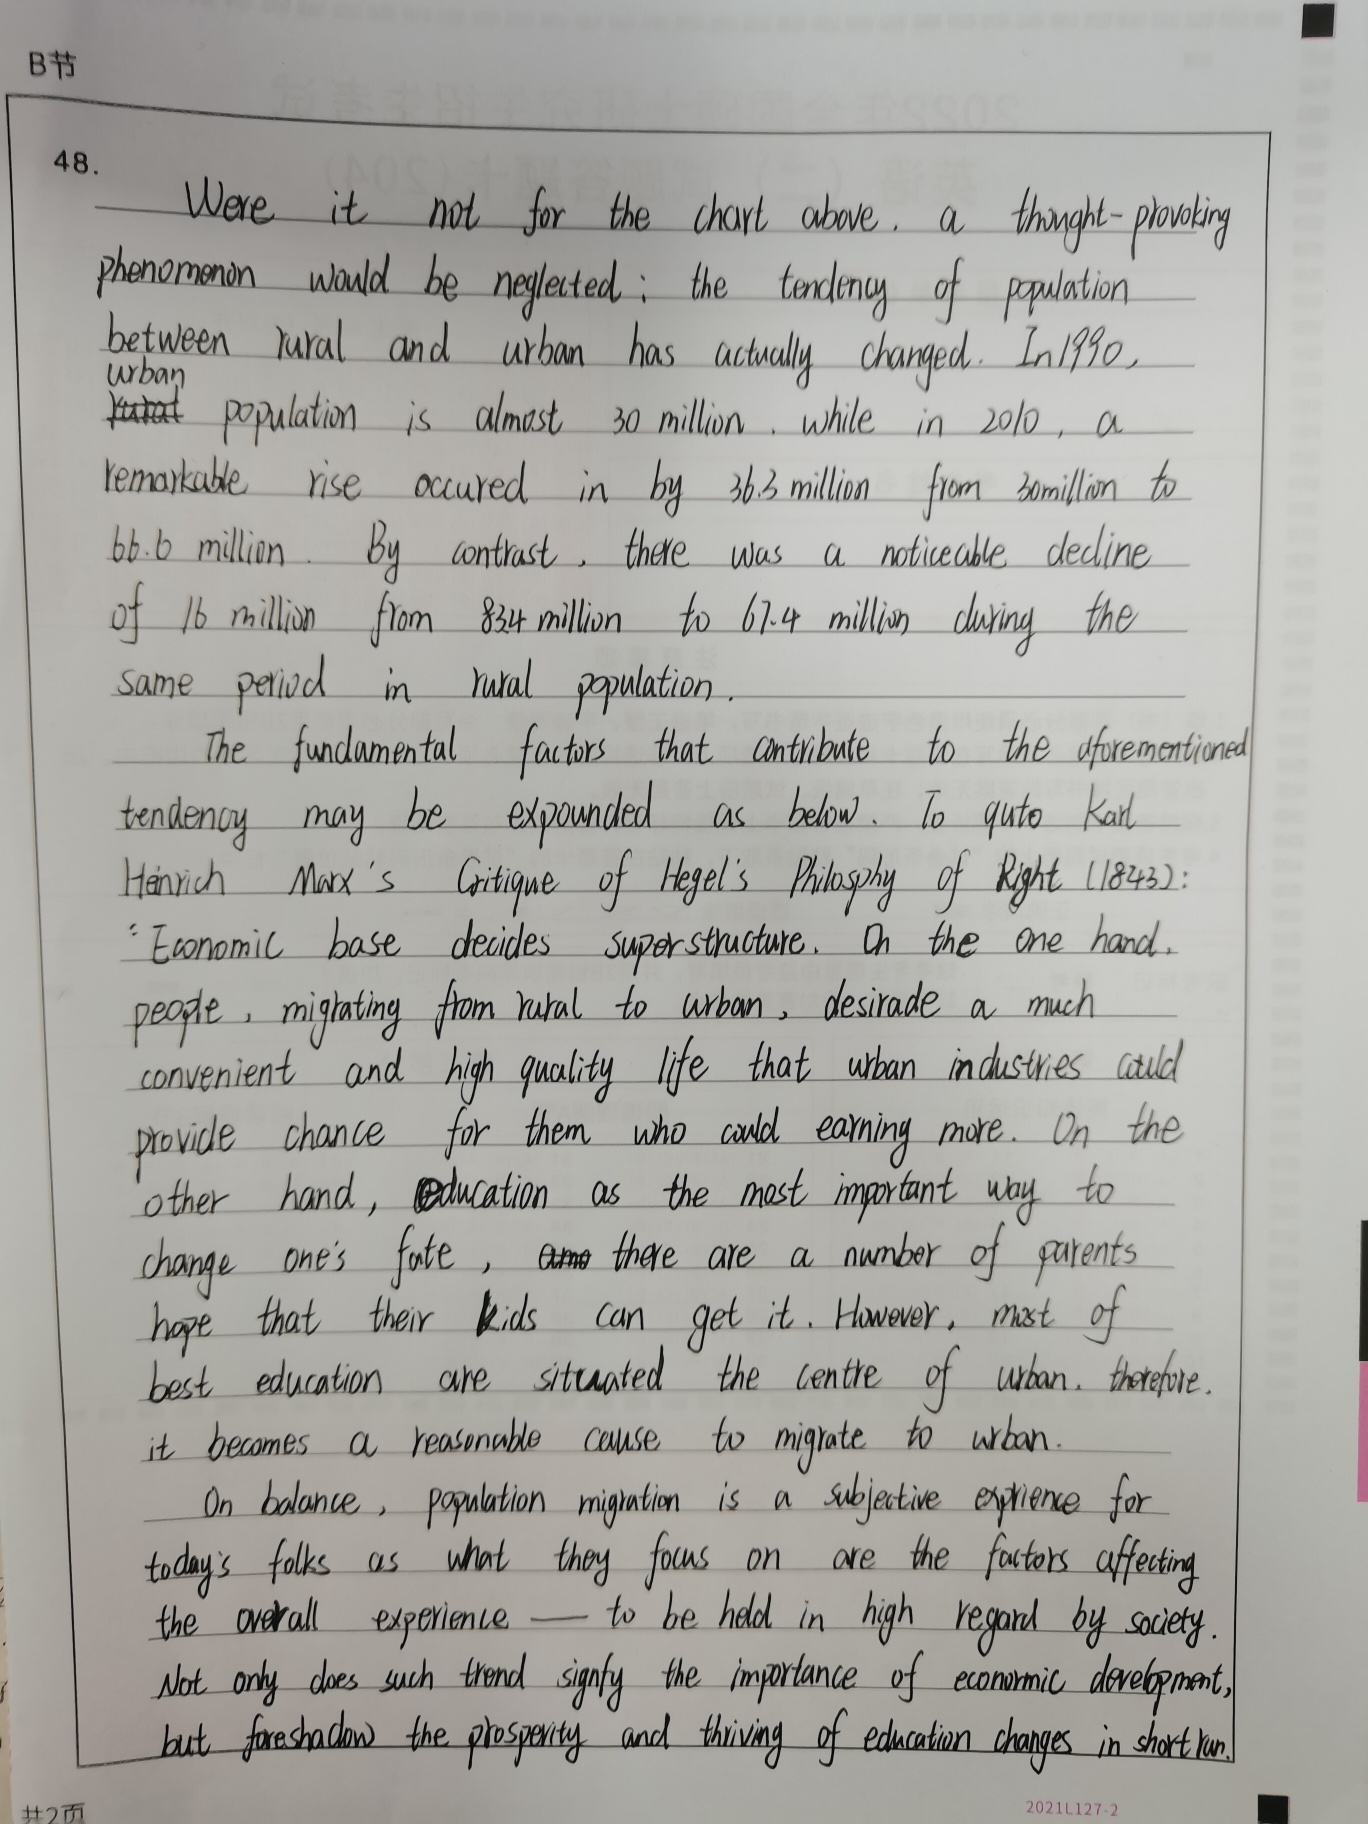 B节
48.
Were it not for the chart above. a thought-provoking
phenomenon would be neglected: the tendency of population
between rural and urban has actually changed. In 1990,
urban
rural population is almost 30 million. while in 2010, a
remarkable rise occured in by 36.3 million from 30million to
66.6 million. By contrast, there was a noticeable decline
of 16 million from 834 million to 67.4 million during the
same period in rural population.
The fundamental factors that contribute to the aforementioned
tendency may be expounded as below. To quto Karl
Heinrich Marx's Critique of Hegel's Philosphy of Right (1843):
"Economic base decides superstructure. On the one hand.
people, migrating from rural to urban, desirade a much
convenient and high quality life that urban industries could
provide chance for them who could earning more. On the
other hand, education as the most important way to
change one's fate, there are a number of parents
hope that their kids can get it. However, most of
best education are situated the centre of urban. therefore.
it becomes a reasonable cause to migrate to urban.
On balance, population migration is a subjective exprience for
today's folks as what they focus on are the factors affecting
the overall experience — to be held in high regard by society.
Not only does such trend signfy the importance of economic development,
but foreshadow the prosperity and thriving of education changes in short run.
共2页
2021L127-2